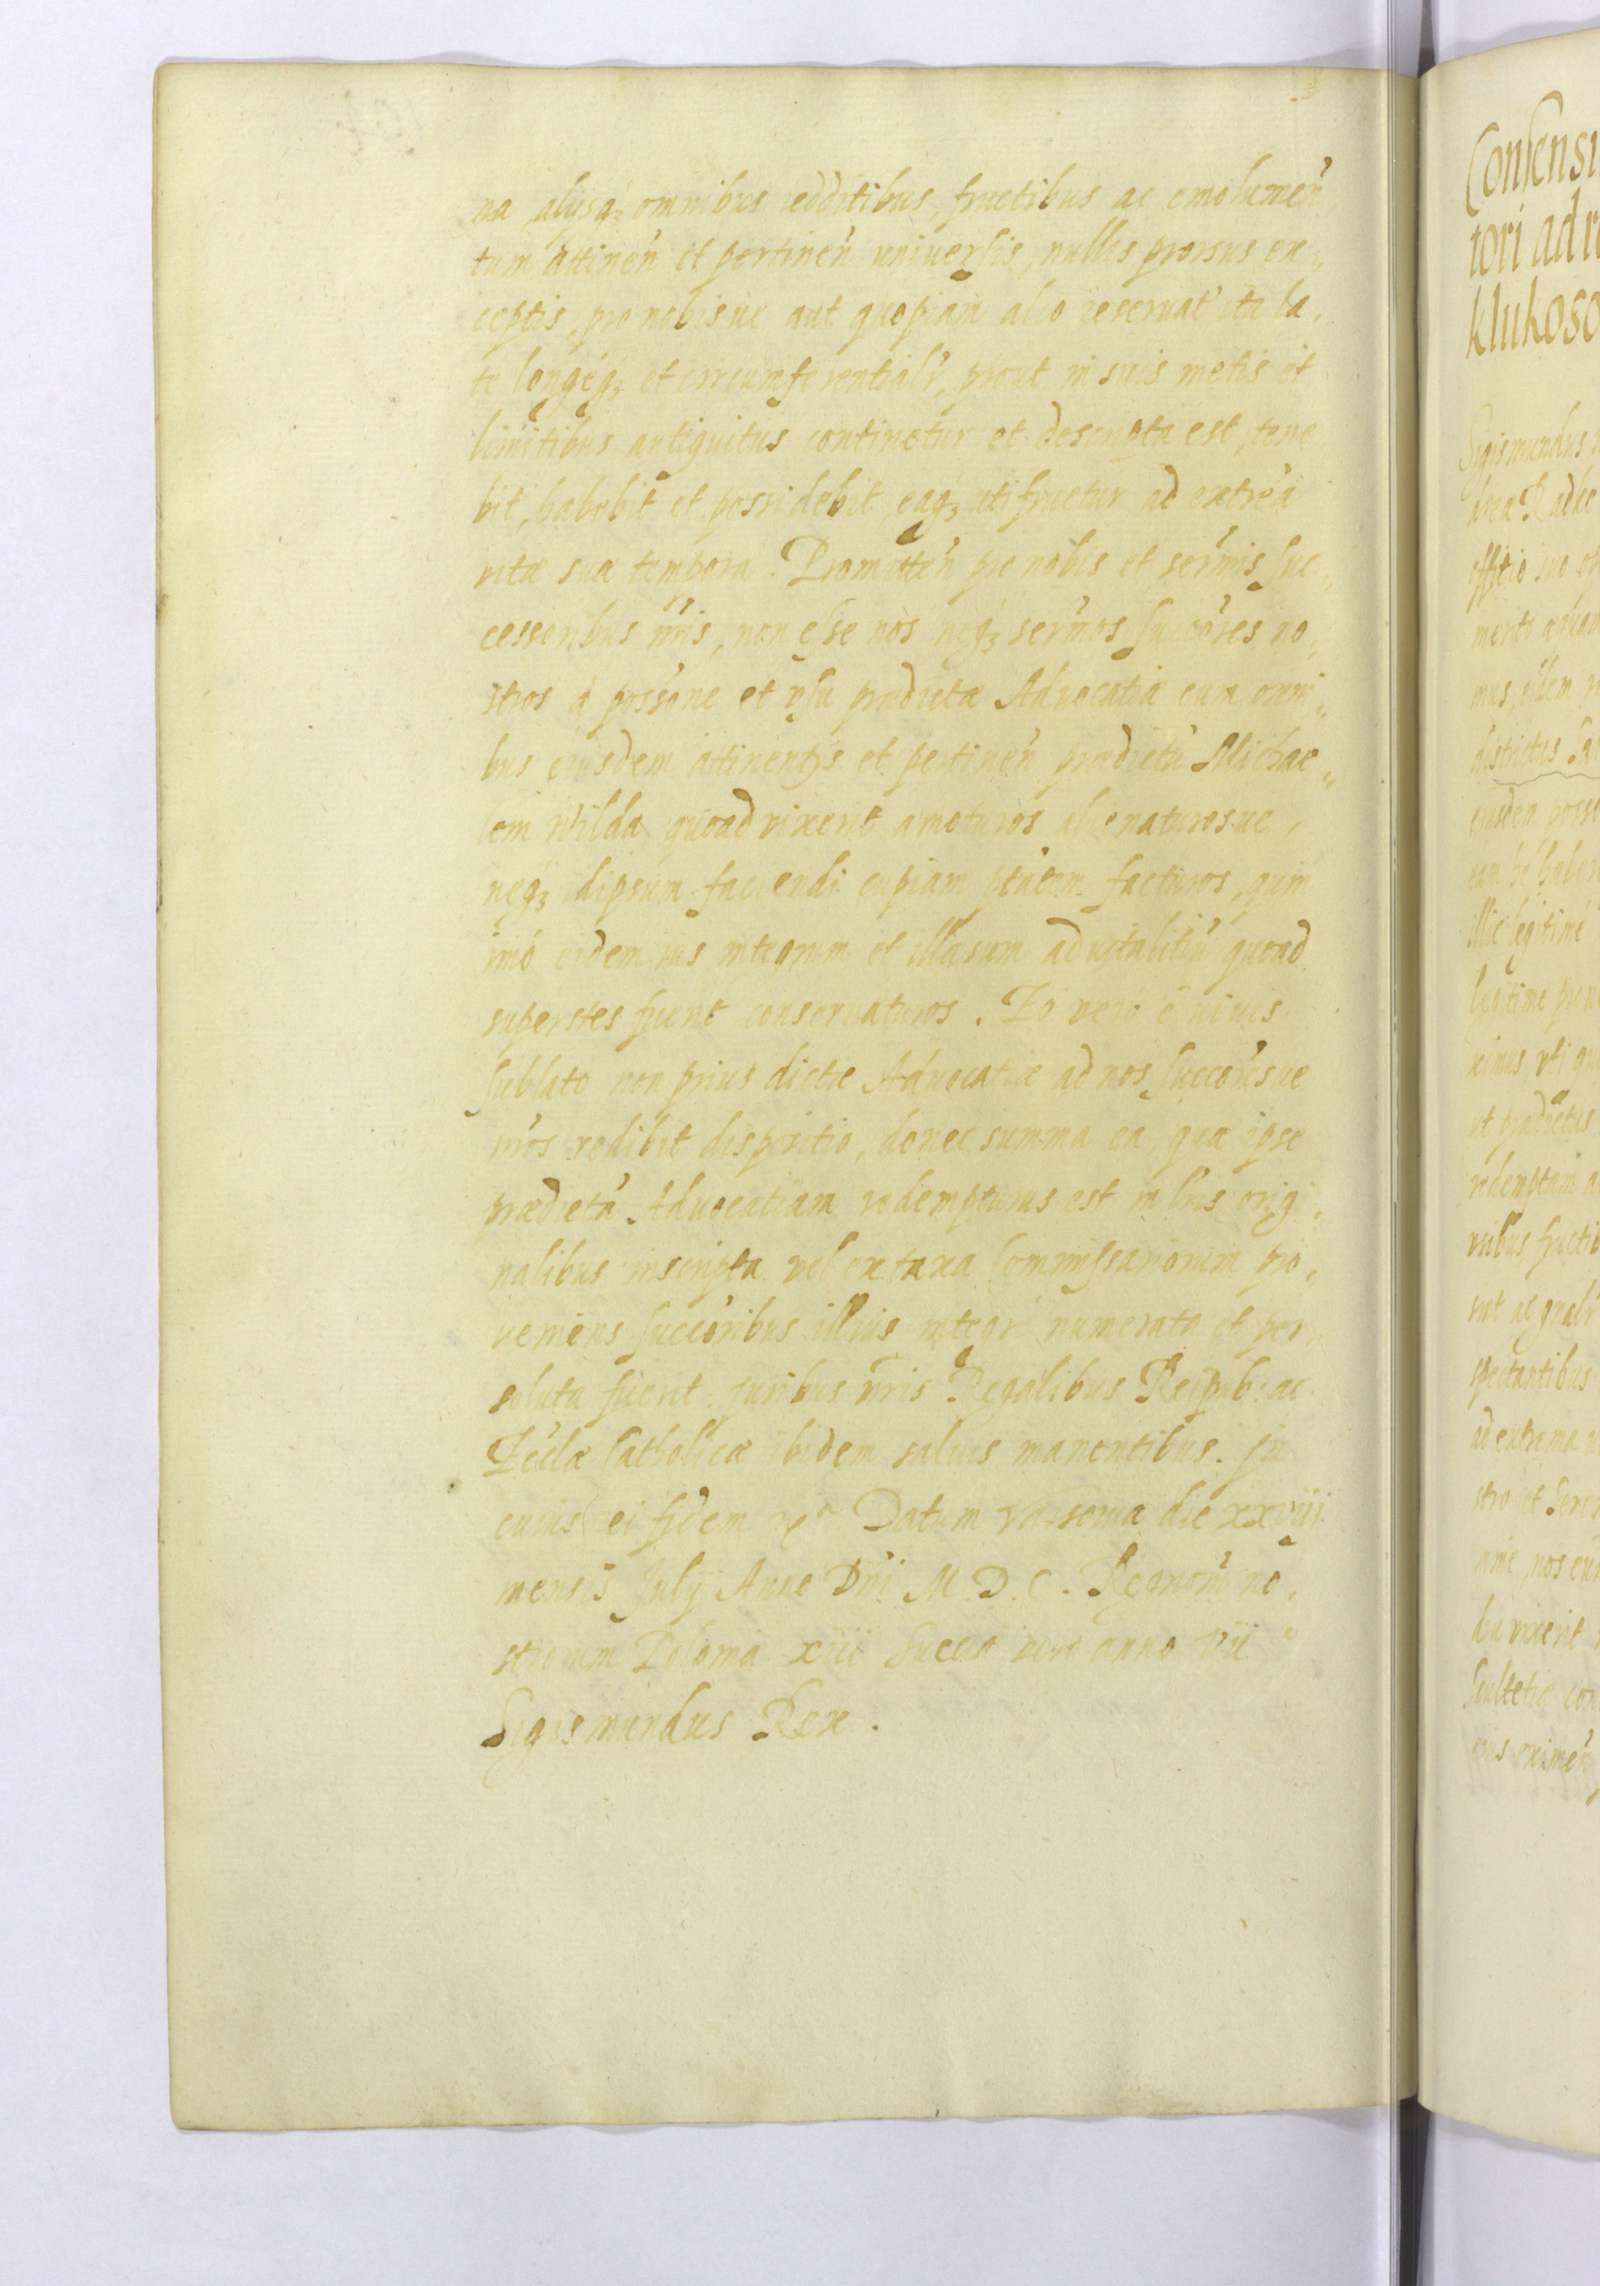 na alijsq; omnibus redditibus, fructibus ac emolumen̄
tum attinen̄ et pertinen̄ uniuersis, nullis prorsus ex,
ceptis, pro nobisue aut quopiam alio reseruat̄ ita la,
te longeq; et circumferentialr̄, prout in suis metis et
limitibus antiquitus continetur et descripta est, tene
bit, habebit et possidebit, eaq; uti fruetur ad extrea
vitæ suæ tempora. Promitten̄ pro nobis et serm̄is suc,,
cessoribus nr̄is, non esse nos neq; serm̄os succōres no,
stros à possōne et usu prædictæ Aduocatiæ cum omni,,
bus eiusdem attinentijs et pertinen̄ prædictū Michae,,
lem Wilda quoad vixerit amoturos alienaturosue,
neq; idipsum faciendi cupiam ptātem facturos, quin
imò eidem ius integrum et illæsum aduitalitiū quoad
superstes fuerit conseruaturos. Eo vero è viuis
sublato non prius dictæ Aduocatiæ ad nos succōresue
nr̄os redibit dispositio, donec summa ea, qua ipse
prædictā Aduocatiam redempturus est in lris origi,,
nalibus inscripta vel ex taxa Commissariorum pro,
ueniens succōribus illius integr̄ numerata et per
soluta fuerit. Juribus nr̄is Regalibus Reipub. ac
Eccłæ Catholicæ ibidem saluis manentibus. In
cuius rei fidem &c. Datum Varsouiæ die XXVIII
mensis July Anno Dn̄i M.D.C. Regnorū no,
strorum Poloniæ XIII Sueciæ vero anno VII
Sigismundus Rex.
Consensu
tori ad r
klukoso
Sigismundus
officio suo
mus,
districtus
eiusdem posse
illic legitime
legitime
redemptam a
spectantibus
ad extrema
stro et Seren
nos eun
vixerit
Scultetiæ con